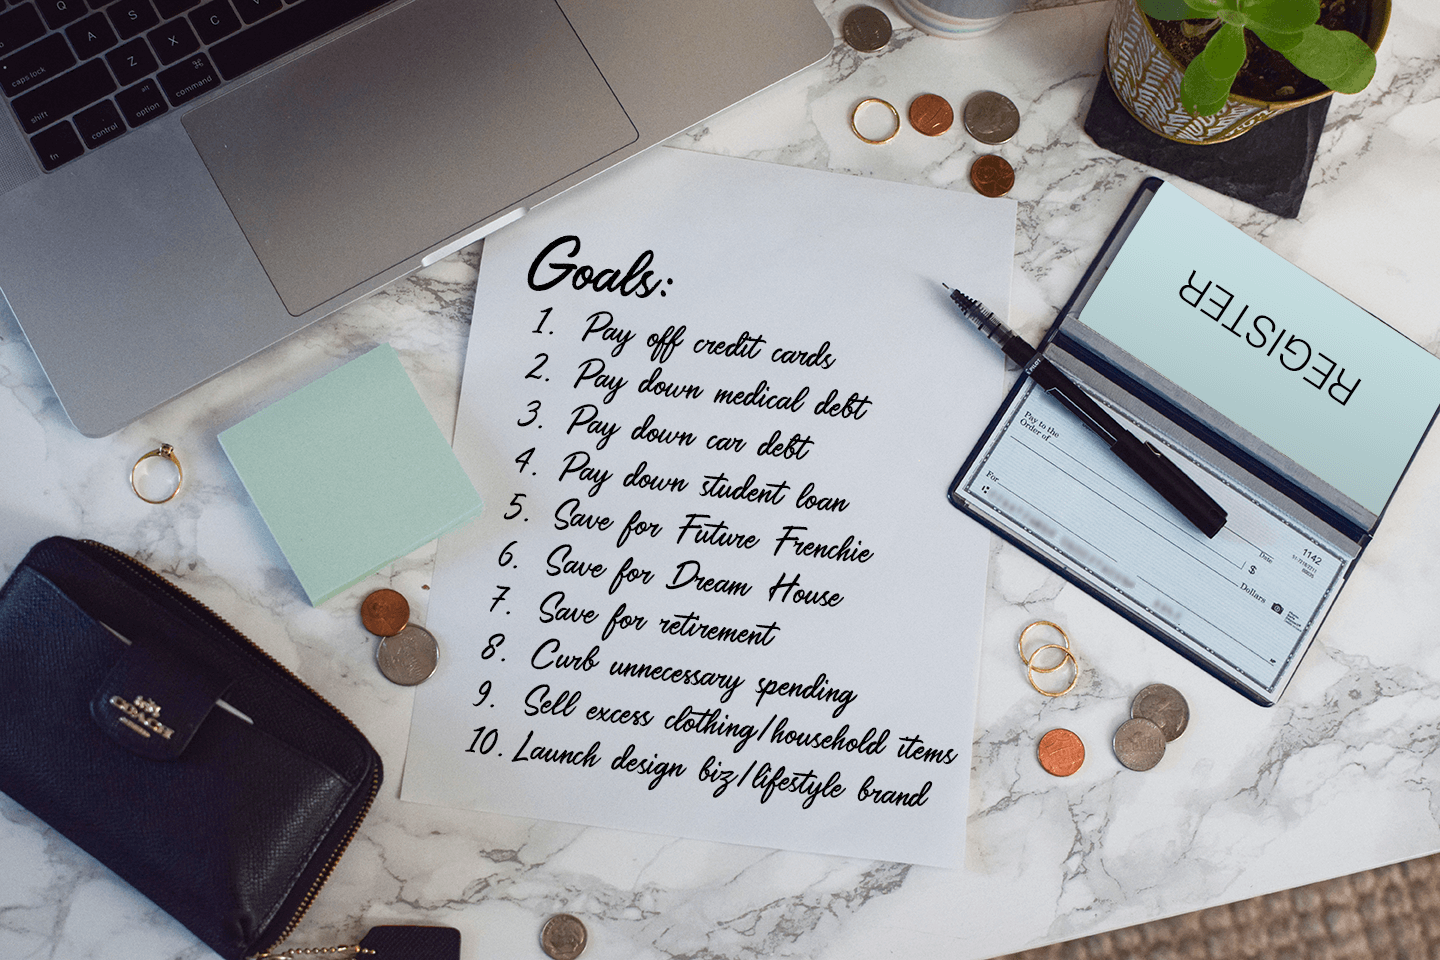 Q
A
S
Z
X
C
V
caps lock
shift
fn
control
alt
option
⌘
command
Goals:
1. Pay off credit cards
2. Pay down medical debt
3. Pay down car debt
4. Pay down student loan
5. Save for Future Frenchie
6. Save for Dream House
7. Save for retirement
8. Curb unnecessary spending
9. Sell excess clothing/household items
10. Launch design biz/lifestyle brand
REGISTER
Pay to the
Order of
For
1142
Date
$
Dollars
COACH